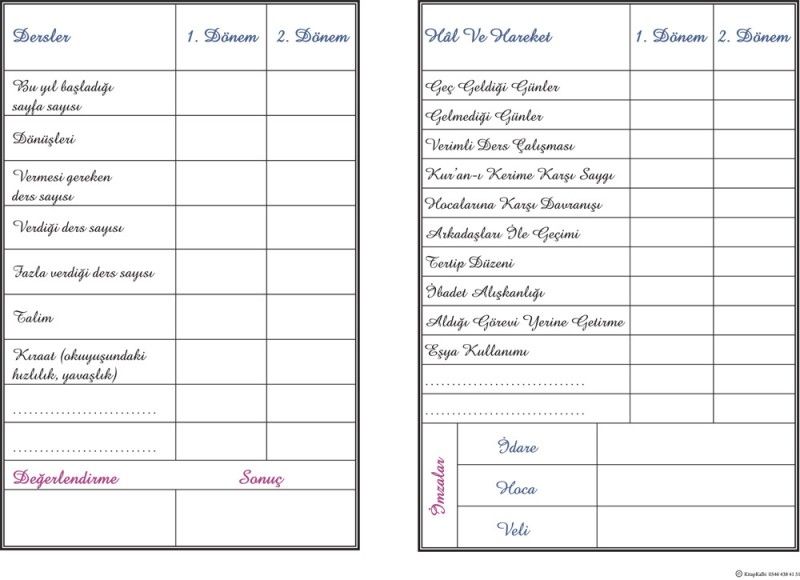 Dersler 1. Dönem 2. Dönem
Bu yıl başladığı
sayfa sayısı
Dönüşleri
Vermesi gereken
ders sayısı
Verdiği ders sayısı
Fazla verdiği ders sayısı
Talim
Kıraat (okuyuşundaki
hızlılık, yavaşlık)
...........................
...........................
Değerlendirme Sonuç
Hâl Ve Hareket 1. Dönem 2. Dönem
Geç Geldiği Günler
Gelmediği Günler
Verimli Ders Çalışması
Kur'an-ı Kerime Karşı Saygı
Hocalarına Karşı Davranışı
Arkadaşları İle Geçimi
Tertip Düzeni
İbadet Alışkanlığı
Aldığı Görevi Yerine Getirme
Eşya Kullanımı
..............................
..............................
İmzalar
İdare
Hoca
Veli
© KitapKalbi 0546 438 41 51